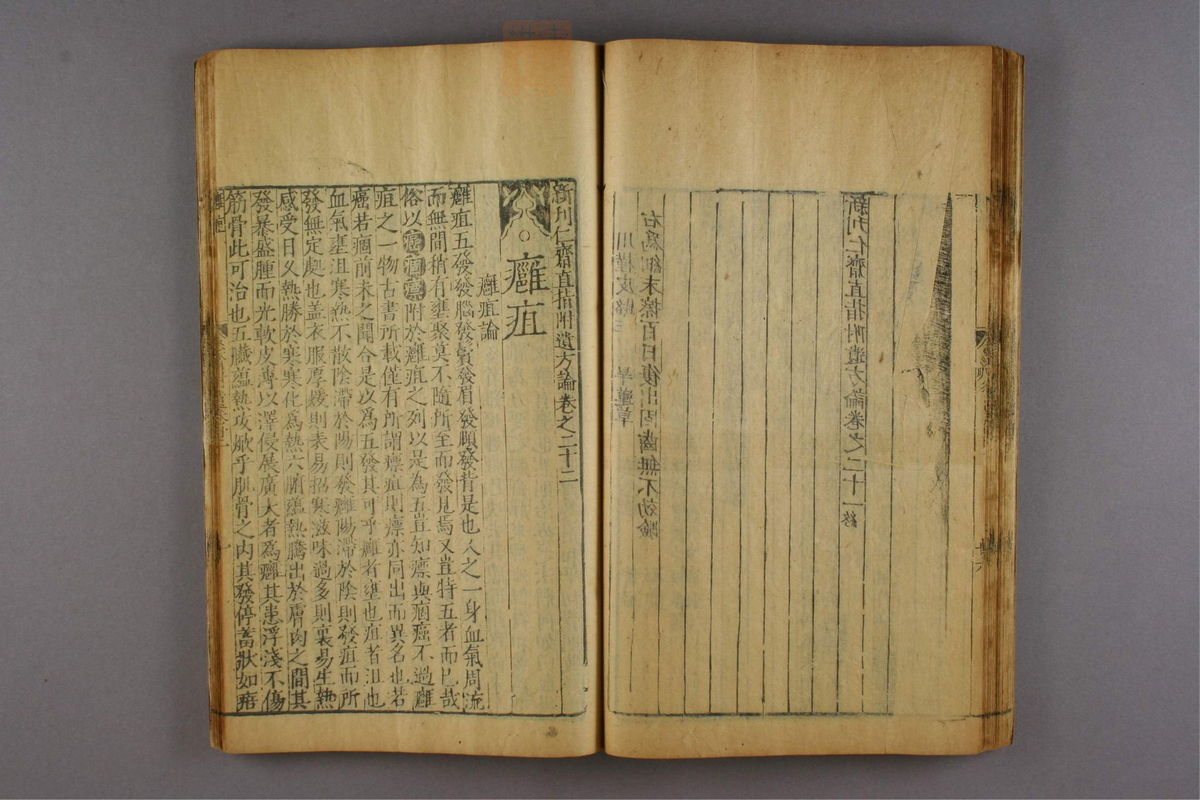 右為細末擦百日復出固齒無不効驗
新刊仁齋直指附遺方論卷之二十一終
新刊仁齋直指附遺方論卷之二十二
癰疽
癰疽論
癰疽五發發腦發鬢發眉發頤發背是也人之一身血氣周流
而無間稍有壅聚莫不隨所至而發見焉又豈特五者而已哉
俗以癌痼瘭附於癰疽之列以是為五豈知瘭與痼癌不過癰
疽之一物古書所載僅有所謂瘭疽則瘭亦同出而異名也若
癌若痼前未之聞合是以為五發其可乎癰者壅也疽者沮也
血氣壅沮寒熱不散陰滯於陽則發癰陽滯於陰則發疽而所
發無定處也蓋衣服厚煖則表易招寒滋味過多則裏易生熱
感受日久熱勝於寒寒化為熱六腑蘊熱騰出於膚肉之間其
發暴盛腫而光軟皮薄以澤侵展廣大者為癰其患浮淺不傷
筋骨此可治也五臟蘊熱攻焮乎肌骨之内其發停蓄狀如痦